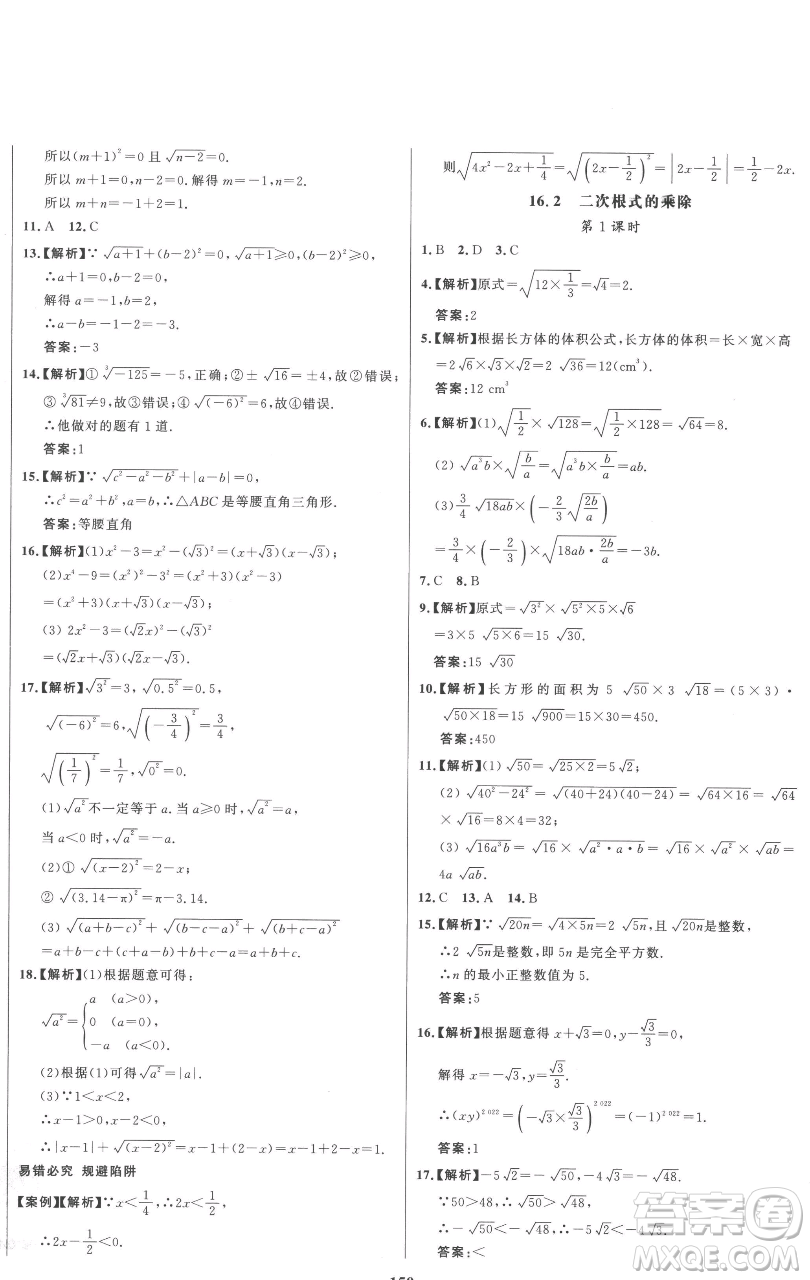 所以(m+1)²=0且√(n-2)=0.
所以m+1=0,n-2=0.解得m=-1,n=2.
所以m+n=-1+2=1.
11.A 12.C
13.【解析】∵√(a+1)+(b-2)²=0,√(a+1)≥0,(b-2)²≥0,
∴a+1=0,b-2=0,
解得a=-1,b=2.
∴a-b=-1-2=-3.
答案:-3
14.【解析】①³√(-125)=-5,正确;②±√16=±4,故②错误;
③³√81≠9,故③错误;④√((-6)²)=6,故④错误.
∴他做对的题有1道.
答案:1
15.【解析】∵√(c²-a²-b²)+|a-b|=0,
∴c²=a²+b²,a=b,∴△ABC是等腰直角三角形.
答案:等腰直角
16.【解析】(1)x²-3=x²-(√3)²=(x+√3)(x-√3);
(2)x⁴-9=(x²)²-3²=(x²+3)(x²-3)
=(x²+3)(x+√3)(x-√3);
(3) 2x²-3=(√2x)²-(√3)²
=(√2x+√3)(√2x-√3).
17.【解析】√(3²)=3,√(0.5²)=0.5,
√((-6)²)=6,√((-3/4)²)=3/4,
√((1/7)²)=1/7,√(0²)=0.
(1)√(a²)不一定等于a.当a≥0时,√(a²)=a,
当a<0时,√(a²)=-a.
(2)①√((x-2)²)=2-x;
②√((3.14-π)²)=π-3.14.
(3) √((a+b-c)²)+√((b-c-a)²)+√((b+c-a)²)
=a+b-c+a+c-b+b+c-a=a+b+c.
18.【解析】(1)根据题意可得:
√(a²)={a (a>0), 0 (a=0), -a (a<0).
(2)根据(1)可得√(a²)=|a|.
(3)∵1<x<2,
∴x-1>0,x-2<0,
∴|x-1|+√((x-2)²)=x-1+2-x=1.
易错必究 规避陷阱
【案例】【解析】∵x<1/4,∴2x<1/2,
∴2x-1/2<0.
则√(4x²-2x+1/4)=√((2x-1/2)²)=|2x-1/2|=1/2-2x.
16.2 二次根式的乘除
第1课时
1.B 2.D 3.C
4.【解析】原式=√(12×1/3)=√4=2.
答案:2
5.【解析】根据长方体的体积公式,长方体的体积=长×宽×高
=2√6×√3×√2=2√36=12(cm³).
答案:12 cm³
6.【解析】(1)√(1/2)×√128=√(1/2×128)=√64=8.
(2) √(a³b)×√(b/a)=√(a³b×b/a)=ab.
(3)3/4√(18ab)×(-2/3√(2b/a))
=3/4×(-2/3)×√(18ab·2b/a)=-3b.
7.C 8.B
9.【解析】原式=√(3²)×√(5²×5)×√6
=3×5√(5×6)=15√30.
答案:15√30
10.【解析】长方形的面积为5√50×3√18=(5×3)·
√(50×18)=15√900=15×30=450.
答案:450
11.【解析】(1) √50=√(25×2)=5√2;
(2) √(40²-24²)=√((40+24)(40-24))=√(64×16)=√64
×√16=8×4=32;
(3) √(16a³b)=√16×√(a²·a·b)=√16×√(a²)×√(ab)=
4a√(ab).
12.C 13.A 14.B
15.【解析】∵√(20n)=√(4×5n)=2√(5n),且√(20n)是整数,
∴2√(5n)是整数,即5n是完全平方数.
∴n的最小正整数值为5.
答案:5
16.【解析】根据题意得x+√3=0,y-√3/3=0,
解得x=-√3,y=√3/3.
∴(xy)²⁰²²=(-√3×√3/3)²⁰²²=(-1)²⁰²²=1.
答案:1
17.【解析】-5√2=-√50,-4√3=-√48.
∵50>48,∴√50>√48,
∴-√50<-√48,∴-5√2<-4√3.
答案:<
答案圈
MXQE.COM